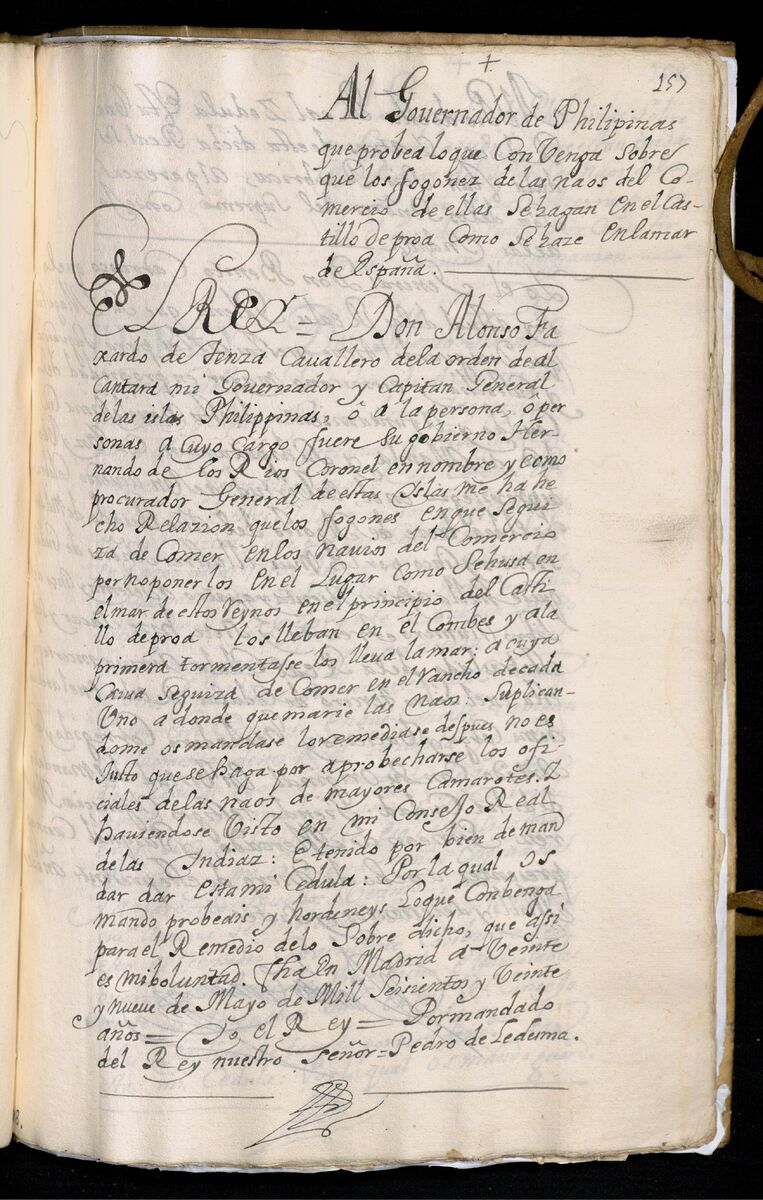 +
157
Al Governador de Philipinas
que probea lo que Con Venga Sobre
que los fogónez de las naos del Co-
mercio de ellas Sehagan en el Cas-
tillo de proa Como Sehaze en la mar
de España.
El Rey = Don Alonso Fa
xardo de tenza Cavallero dela orden de al
cantara mi Governador y Capitan General
delas islas Philippinas, ô a la persona, ô per
sonas a cuyo cargo fuere Su gobierno Her-
nando de los Rios Coronel en nombre y como
procurador General de estas Yslas me ha he
cho Relazion que los fogones en que Segui
za de Comer en los navios del Comercio
por no poner los en el Lugar como Sehusa en
el mar de estos Reynos en el principio del Casti
llo de proa los lleban en el Combes y ala
primera tormenta sse los lleva la mar: a cuya
Caua Seguiza de Comer en el rancho de cada
Uno a donde que marie las naos: Suplican-
dome os mandase lo remediase despues no es
Justo que se haga por aprobecharse los ofi-
ciales de las naos de mayores Camarotes. Y
haviendose Visto en mi Consejo Real
delas Indiaz: E tenido por bien de man
dar dar esta mi Cedula: Por la qual os
mando probeais y hordeneys Loque Conbenga
para el Remedio delo Sobre dicho, que assi
es mi boluntad. fha En Madrid a Veinte
y nueve de Mayo de Mill Seisientos y Veinte
años = Yo el Rey = Por mandado
del Rey nuestro Señor = Pedro de Ledesma.